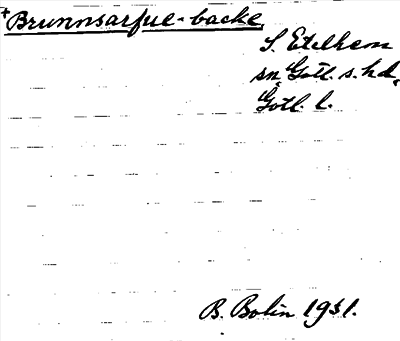 +Brunnsarfue-backe
S. Etelhem
sn, Gotl. s. hd,
Gotl. l.
B. Bolin 1931.